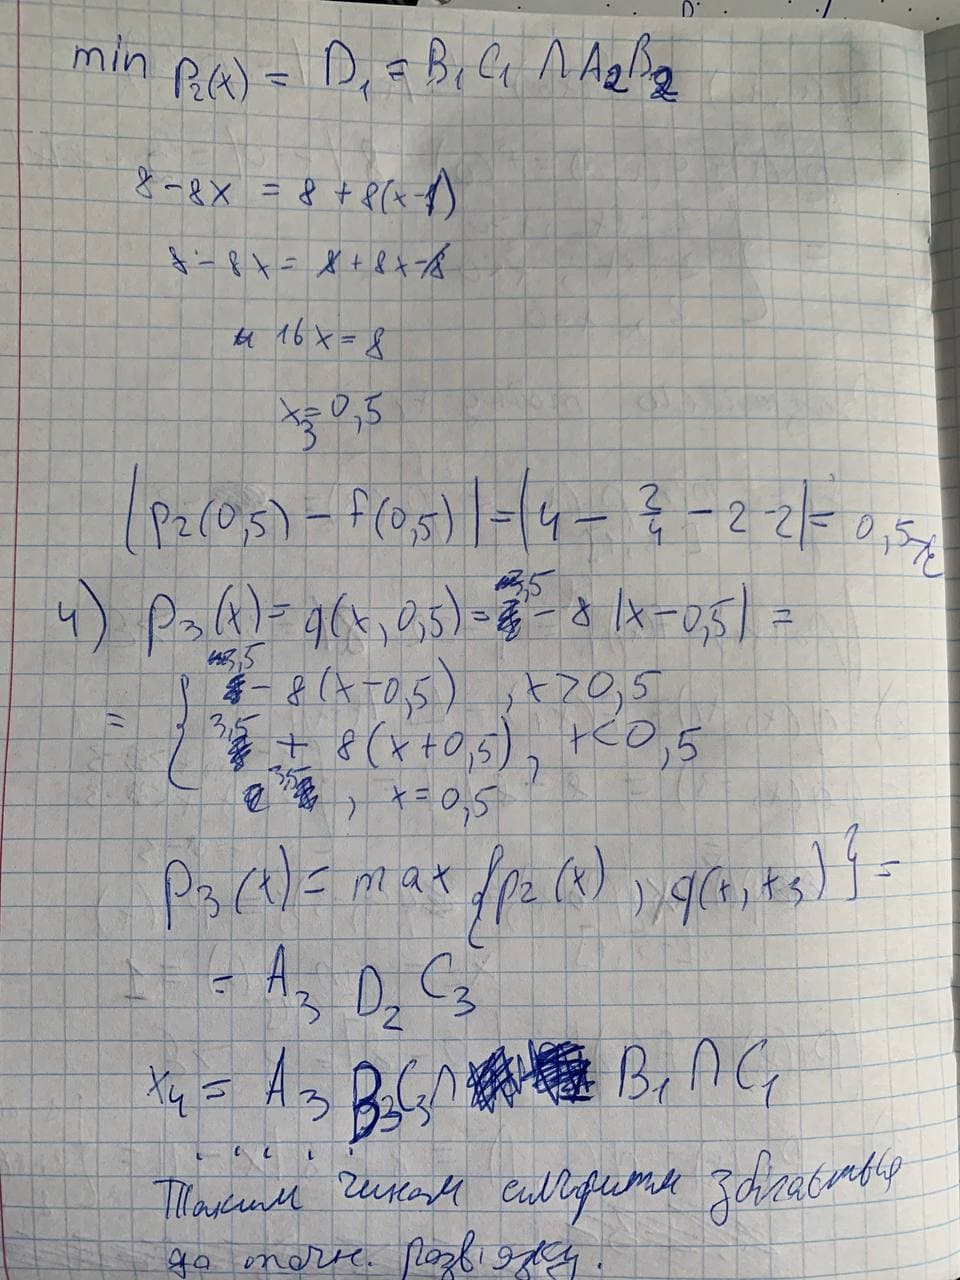 min P₂(x) = D₁ = B₁C₁ ∩ A₂B₂
8 - 8x = 8 + 8(x-1)
8 - 8x = 8 + 8x - 8
16x = 8
x₃ = 0,5
|p₂(0,5) - f(0,5)| = |4 - 2/4 - 2 - 2| = 0,5
4) p₃(x) = q(x, 0,5) = 3,5 - 8|x - 0,5| =
= { 3,5 - 8(x-0,5) , x > 0,5
3,5 + 8(x+0,5) , x < 0,5
3,5 , x = 0,5
p₃(x) = max {p₂(x) , q(x, x₃)} =
= A₃ D₂ C₃
x₄ = A₃ B₃C₃ ∩ B₁ ∩ C₁
. . . . .
Таким чином алгоритм збігається
до точн. розв'язку.